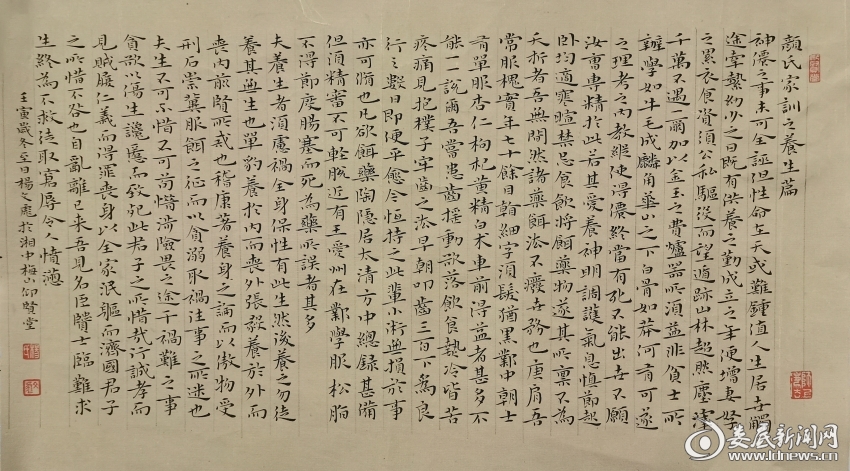 顏氏家訓之養生篇
神僊之事未可全誣但性命在天或難鍾值人生居世觸
途牽縶幼少之日既有供養之勤成立之年便增妻孥
之累衣食資須公私驅役而望遁跡山林超然塵滓
千萬不遇一爾加以金玉之費爐器所須益非貧士所
辦學如牛毛成麟角華山之下白骨如莽何有可遂
之理考之內教縱使得僊終當有死不能出世不願
汝曹專精於此若其愛養神明調護氣息慎節起
卧均適寒暄禁忌食飲將餌藥物遂其所稟不為
夭折者吾無間然諸藥餌法不廢世務也庾肩吾
常服槐實年七十餘目看細字鬚髮猶黑鄴中朝士
有單服杏仁枸杞黃精白术車前得益者甚多不
能一一說爾吾嘗患齒搖動欲落飲食熱冷皆苦
疼痛見抱樸子牢齒之法早朝叩齒三百下為良
行之數日即便平愈今恒持之此輩小術無損於事
亦可脩也凡欲餌藥陶隱居太清方中總錄甚備
但須精審不可輕脫近有王愛州在鄴學服松脂
不得節度腸塞而死為藥所誤者甚多
夫養生者須慮禍全身保性有此生然後養之勿徒
養其無生也單豹養於內而喪外張毅養於外而
喪內前賢所戒也嵇康著養身之論而以傲物受
刑石崇冀服餌之征而以貪溺取禍往事之所迷也
夫生不可不惜不可苟惜涉險畏之途干禍難之事
貪欲以傷生讒慝而致死此君子之所惜哉行誠孝而
見賊履仁義而得罪喪身以全家泯軀而濟國君子
之所惜不咎也自亂離已來吾見名臣賢士臨難求
生終為不救徒取窘辱令人憤懣
壬寅歲冬至日楊文於湘中梅山仰賢堂
娄底新闻网
www.ldnews.cn